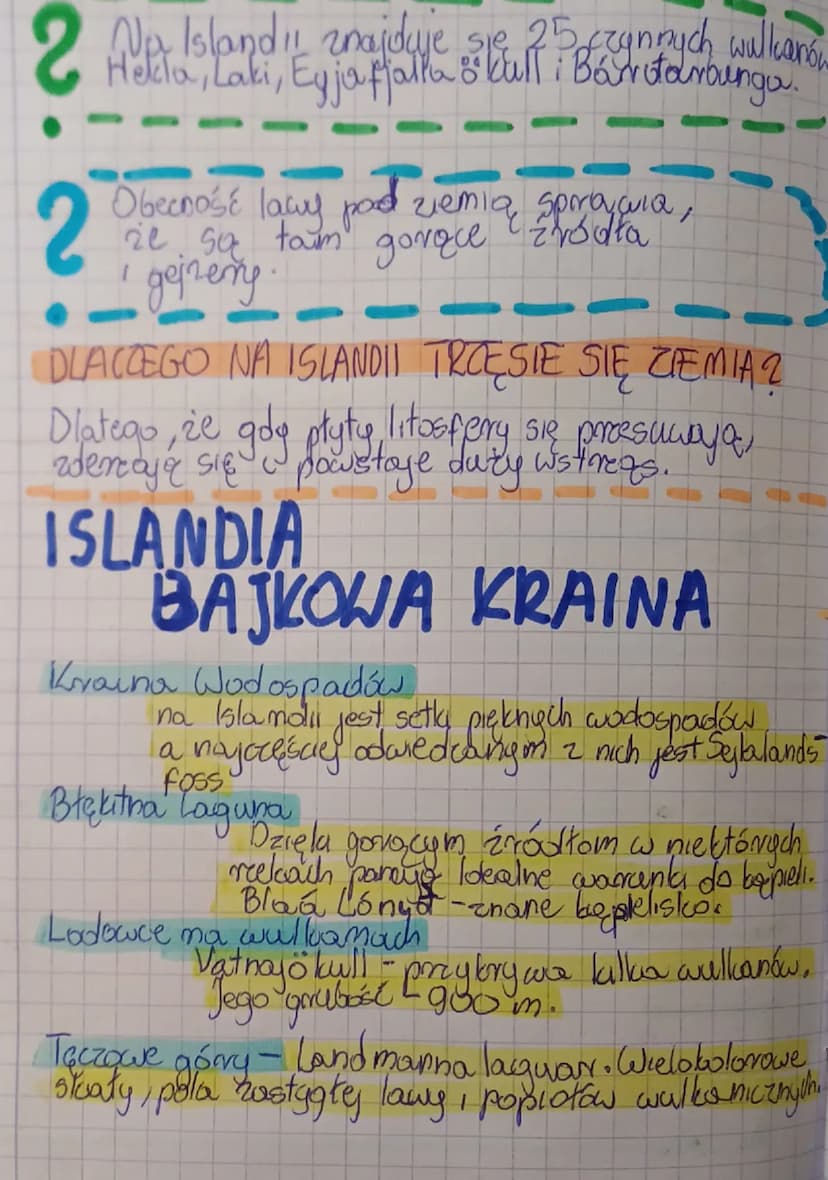 ?
Na Islandii znajduje się 25 czynnych wulkanów
Hekla, Laki, Eyjafjallaökull i Bárdarbunga.
?
Obecność lawy pod ziemią sprawia,
że są tam gorące źródła
i gejzery.
DLACZEGO NA ISLANDII TRZĘSIE SIĘ ZIEMIA?
Dlatego, że gdy płyty litosfery się przesuwają,
zderzają się i powstaje duży wstrząs.
ISLANDIA
BAJKOWA KRAINA
Kraina Wodospadów
na Islandii jest setki pięknych wodospadów
a najczęściej odwiedzanym z nich jest Sejlalands
foss
Błękitna Laguna
Dzięki gorącym źródłom w niektórych
rzekach panują idealne warunki do kąpieli.
Bláa Lónyd - znane kąpielisko.
Lodowce na wulkanach
Vatnajökull - przykrywa kilka wulkanów.
Jego grubość - 900 m.
Tęczowe góry - Landmanna laguar. Wielokolorowe
skały, pola zastygłej lawy i popiołów wulkanicznych.